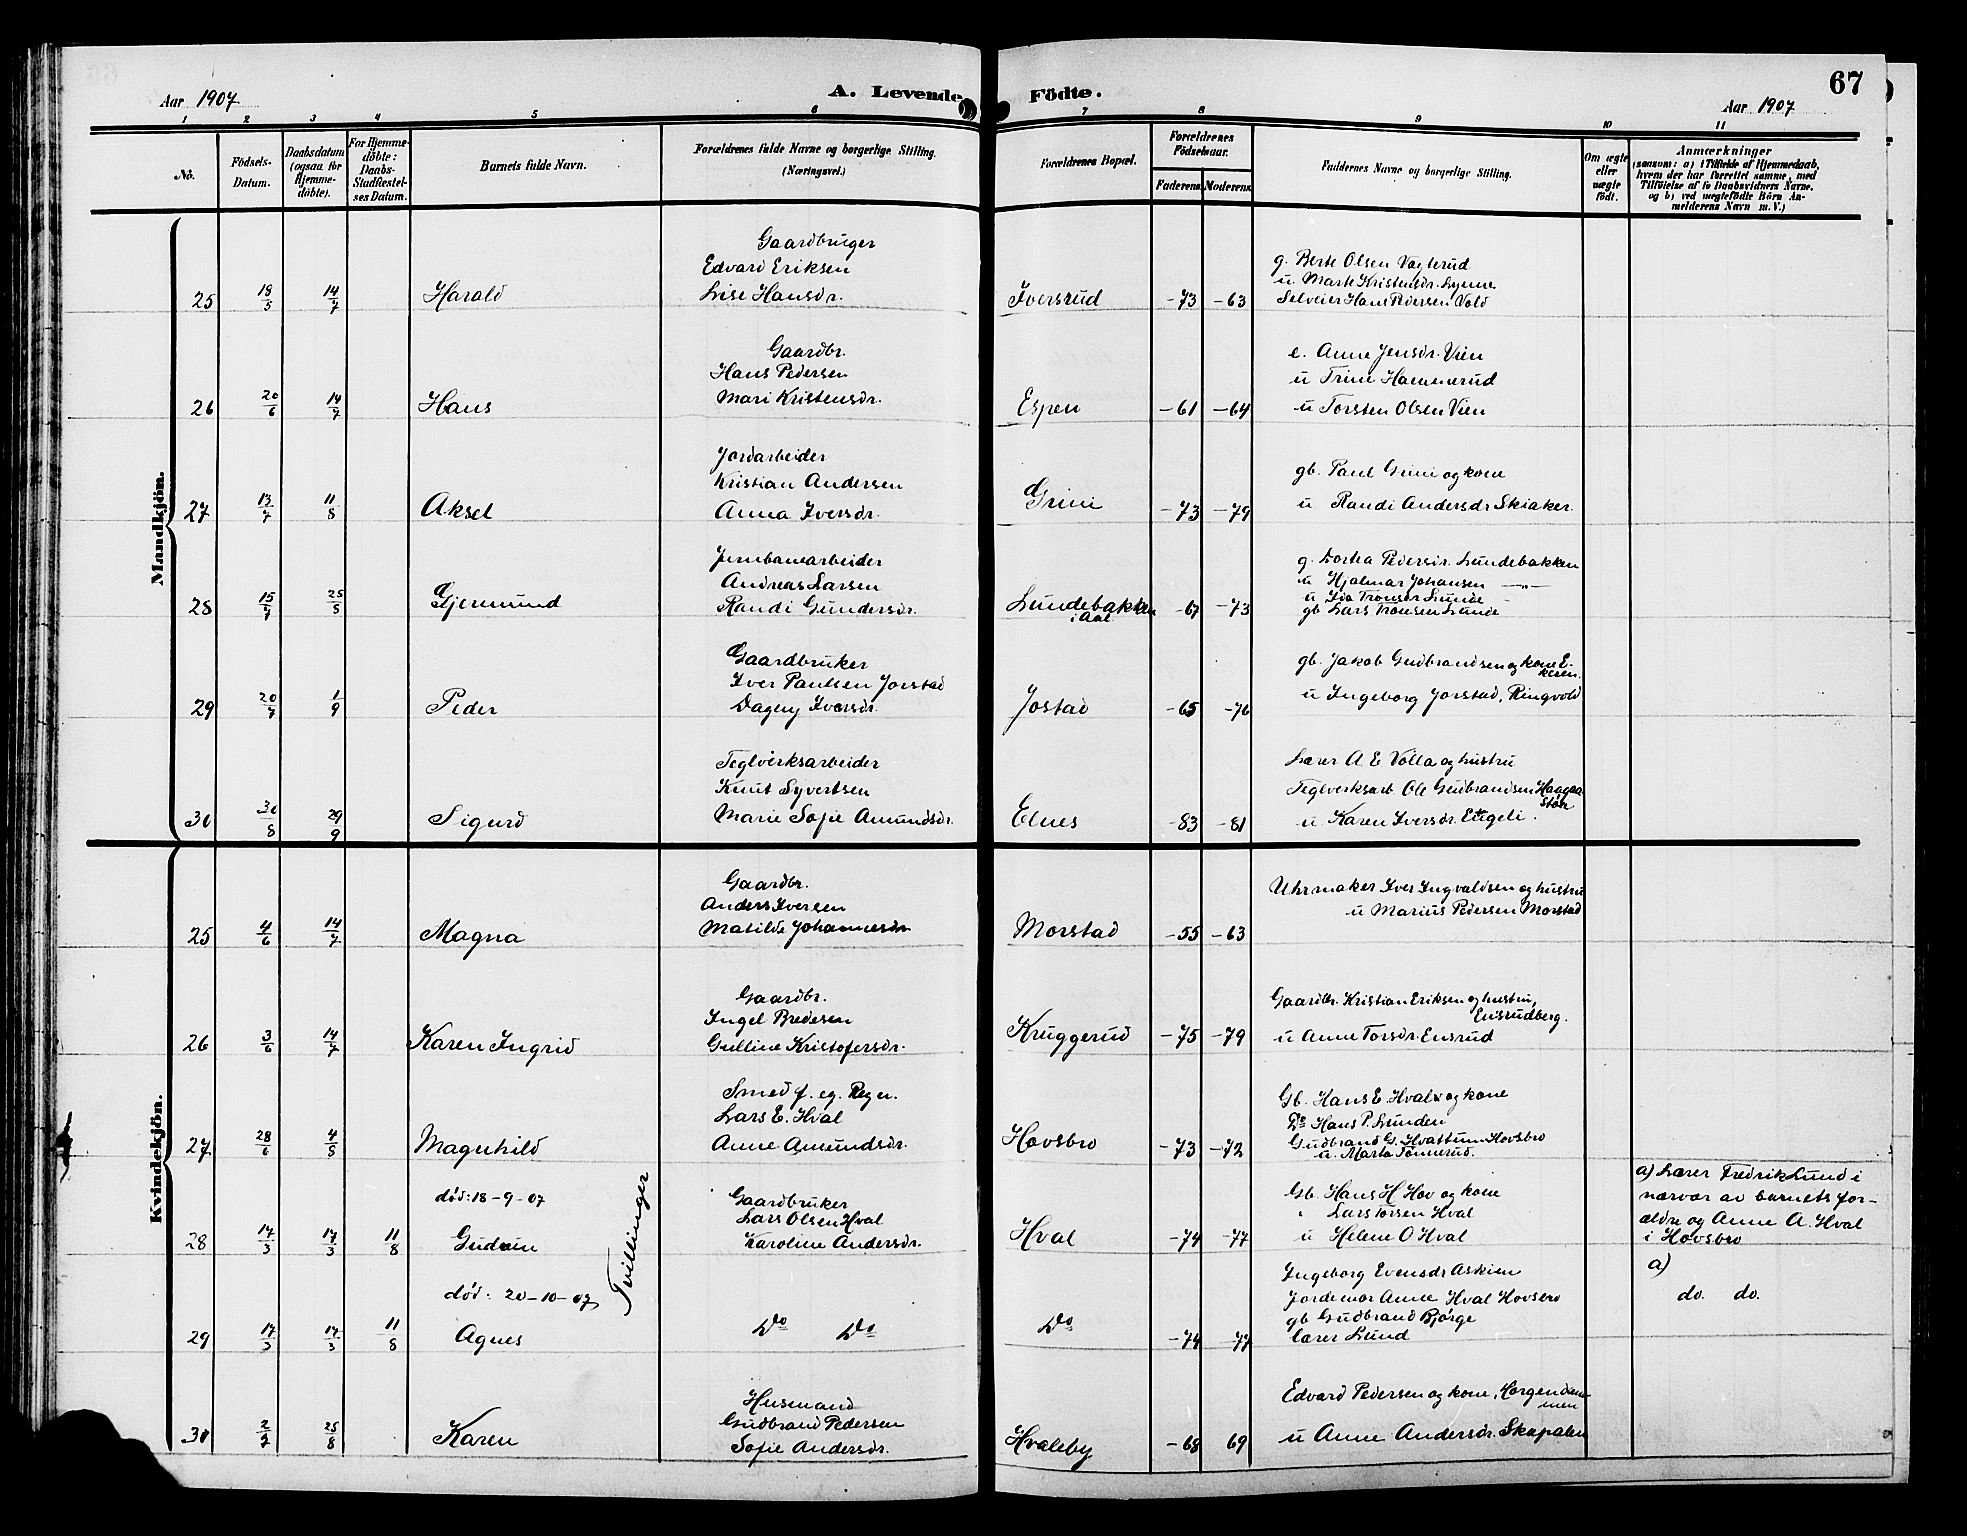 67
Aar 1907 A. Levende Födte. Aar 1907
1 2 3 4 5 6 7 8 9 10 11
No.
Födsels-
Datum.
Daabsdatum
(ogsaa for
Hjemme-
döbte).
For Hjemme-
döbte:
Daabs-
Stadfæstel-
ses Datum.
Barnets fulde Navn.
Forældrenes fulde Navne og borgerlige Stilling.
(Næringsvei.)
Forældrenes Bopæl.
Forældrenes
Födselsaar.
Faderens. Moderens.
Faddernes Navne og borgerlige Stilling.
Om ægte
eller
uægte
födt.
Anmærkninger
(saasom: a) i Tilfælde af Hjemmedaab,
hvem der har forrettet samme, med
Tilföielse af to Daabsvidners Navne.
og b) ved uægtefödte Börn An-
melderens Navn m. V.)
Mandkjön.
Gaardbruger
Edvard Eriksen
Lise Hansdr.
25 18/5 14/7 Harald Iversrud -73 -63
g. Berte Olsen Vagterud
u. Marte Kristensdr. Lynne
Selveier Hans Pedersen Vold
Gaardbr.
Hans Pedersen
Mari Kristensdr.
26 20/6 14/7 Hans Espen -61 -64
e. Anne Jensdr. Vien
u Trine Hammerud
u Torsten Olsen Vien
Jordarbeider
Kristian Andersen
Anna Iversdr.
27 13/7 11/8 Aksel Grini -73 -79
gb. Paul Grini og kone
u Randi Andersdr Skiaker
Jernbanearbeider
Andreas Larsen
Randi Gundersdr.
28 15/7 25/8 Gjermund Lundebakken
i Aal -67 -73
g. Dortea Pedersdr. Lundebakken
u Hjalmar Johansen —"—
u Ida Tronsdr Lunde -
gb Lars Tronsen Lunde
Gaardbruker
Iver Paulsen Jorstad
Dagny Iversdr.
29 20/7 1/9 Peder Jostad -65 -76
gb. Jakob Gudbrandsen og kone E-
keren.
u Ingeborg Jorstad, Ringvold
Teglverksarbeider
Knut Syvertsen
Marie Sofie Amundsdr.
30 30/8 29/9 Sigurd Elnes -83 -81
Lærer A. E Volla og hustru
Teglverksarb. Ole Gudbrandsen Haaga
u. Karen Iversdr.
Kvindekjön.
Gaardbr.
Anders Iversen
Matilde Johannesdr
25 4/6 14/7 Magna Morstad -55 -63
Uhrmaker Iver Ingvaldsen og hustru
u Marius Pedersen Morstad
Gaardbr.
Ingel Bredesen
Gulline Kristofersdr.
26 3/6 14/7 Karen Ingrid Kruggerud -75 -79
Gaardbr. Kristian Eriksen og hustru,
Ensrudberg.
u Anne Torsdr. Ensrud
Smed f. eg. Regn.
Lars E. Hval
Anne Amundsdr.
27 28/6 4/8 Magnhild Hovsbro -73 -72
Gb. Hans E. Hval og kone
Do Hans P. Lunden
Gudbrand G. Hvattum Hovsbro
u. Marta Tönnerud.
død: 18-9-07
Gaardbruker
Lars Olsen Hval
Karoline Andersdr.
28 17/3 17/3 11/8 Gudrun Hval -74 -77
Gb. Hans H Hov og kone
Lars Torsen Hval
u Helene O Hval
a) Lærer Fredrik Lund i
nærvær av barnets for-
ældre og Anne A. Hval
i Hovsbro
Tvillinger
død: 20-10-07
29 17/3 17/3 11/8 Agnes Do Do Do -74 -77
Ingeborg Evensdr Askien
Jordemor Anne Hval Hovsbro
gb Gudbrand Bjørge
lærer Lund
a)
do. do.
Husmand
Gudbrand Pedersen
Sofie Andersdr.
30 2/7 25/8 Karen Hvaleby -68 69
Edvard Pedersen og kone, Horgendam-
men
u Anne Andersdr. Skapalen